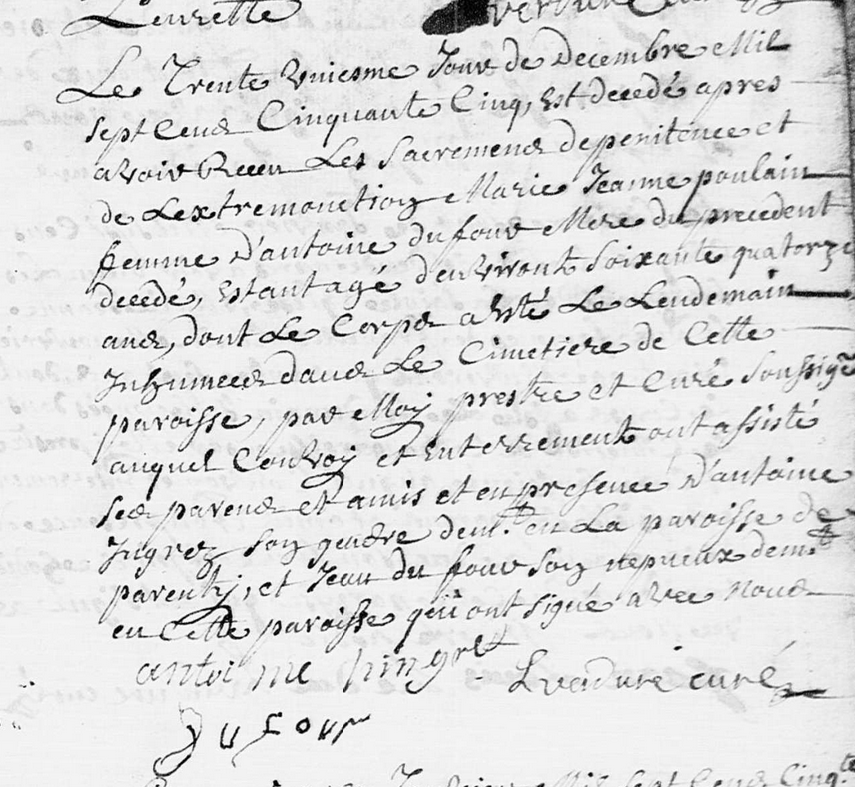 Leurette verdure
Le Trente Uniesme Jour de Decembre Mil
sept Cens Cinquante Cinq, Est decedé apres
avoir Receu Les Sacremens de penitence et
de Lextremonction Marie Jeanne poulain
femme D'antoine du four Mere du precedent
decedé, Estant agé d'environt soixante quatorze
ans, dont Le Corps a Esté Le Lendemain
Inhumees dans Le Cimetiere de Cette
paroisse, par Moy prestre et Curé soussigné
auquel Convoy et Enterrement ont assisté
ses parens et amis et en presence D'antoine
Jngrez son gendre demt. en La paroisse de
parenty, et Jean du four son nepueux demt
en Cette paroisse qui ont signé avec nous
antoine hingret Lverdure curé
Dufour
Mil sept Cens Cinqte